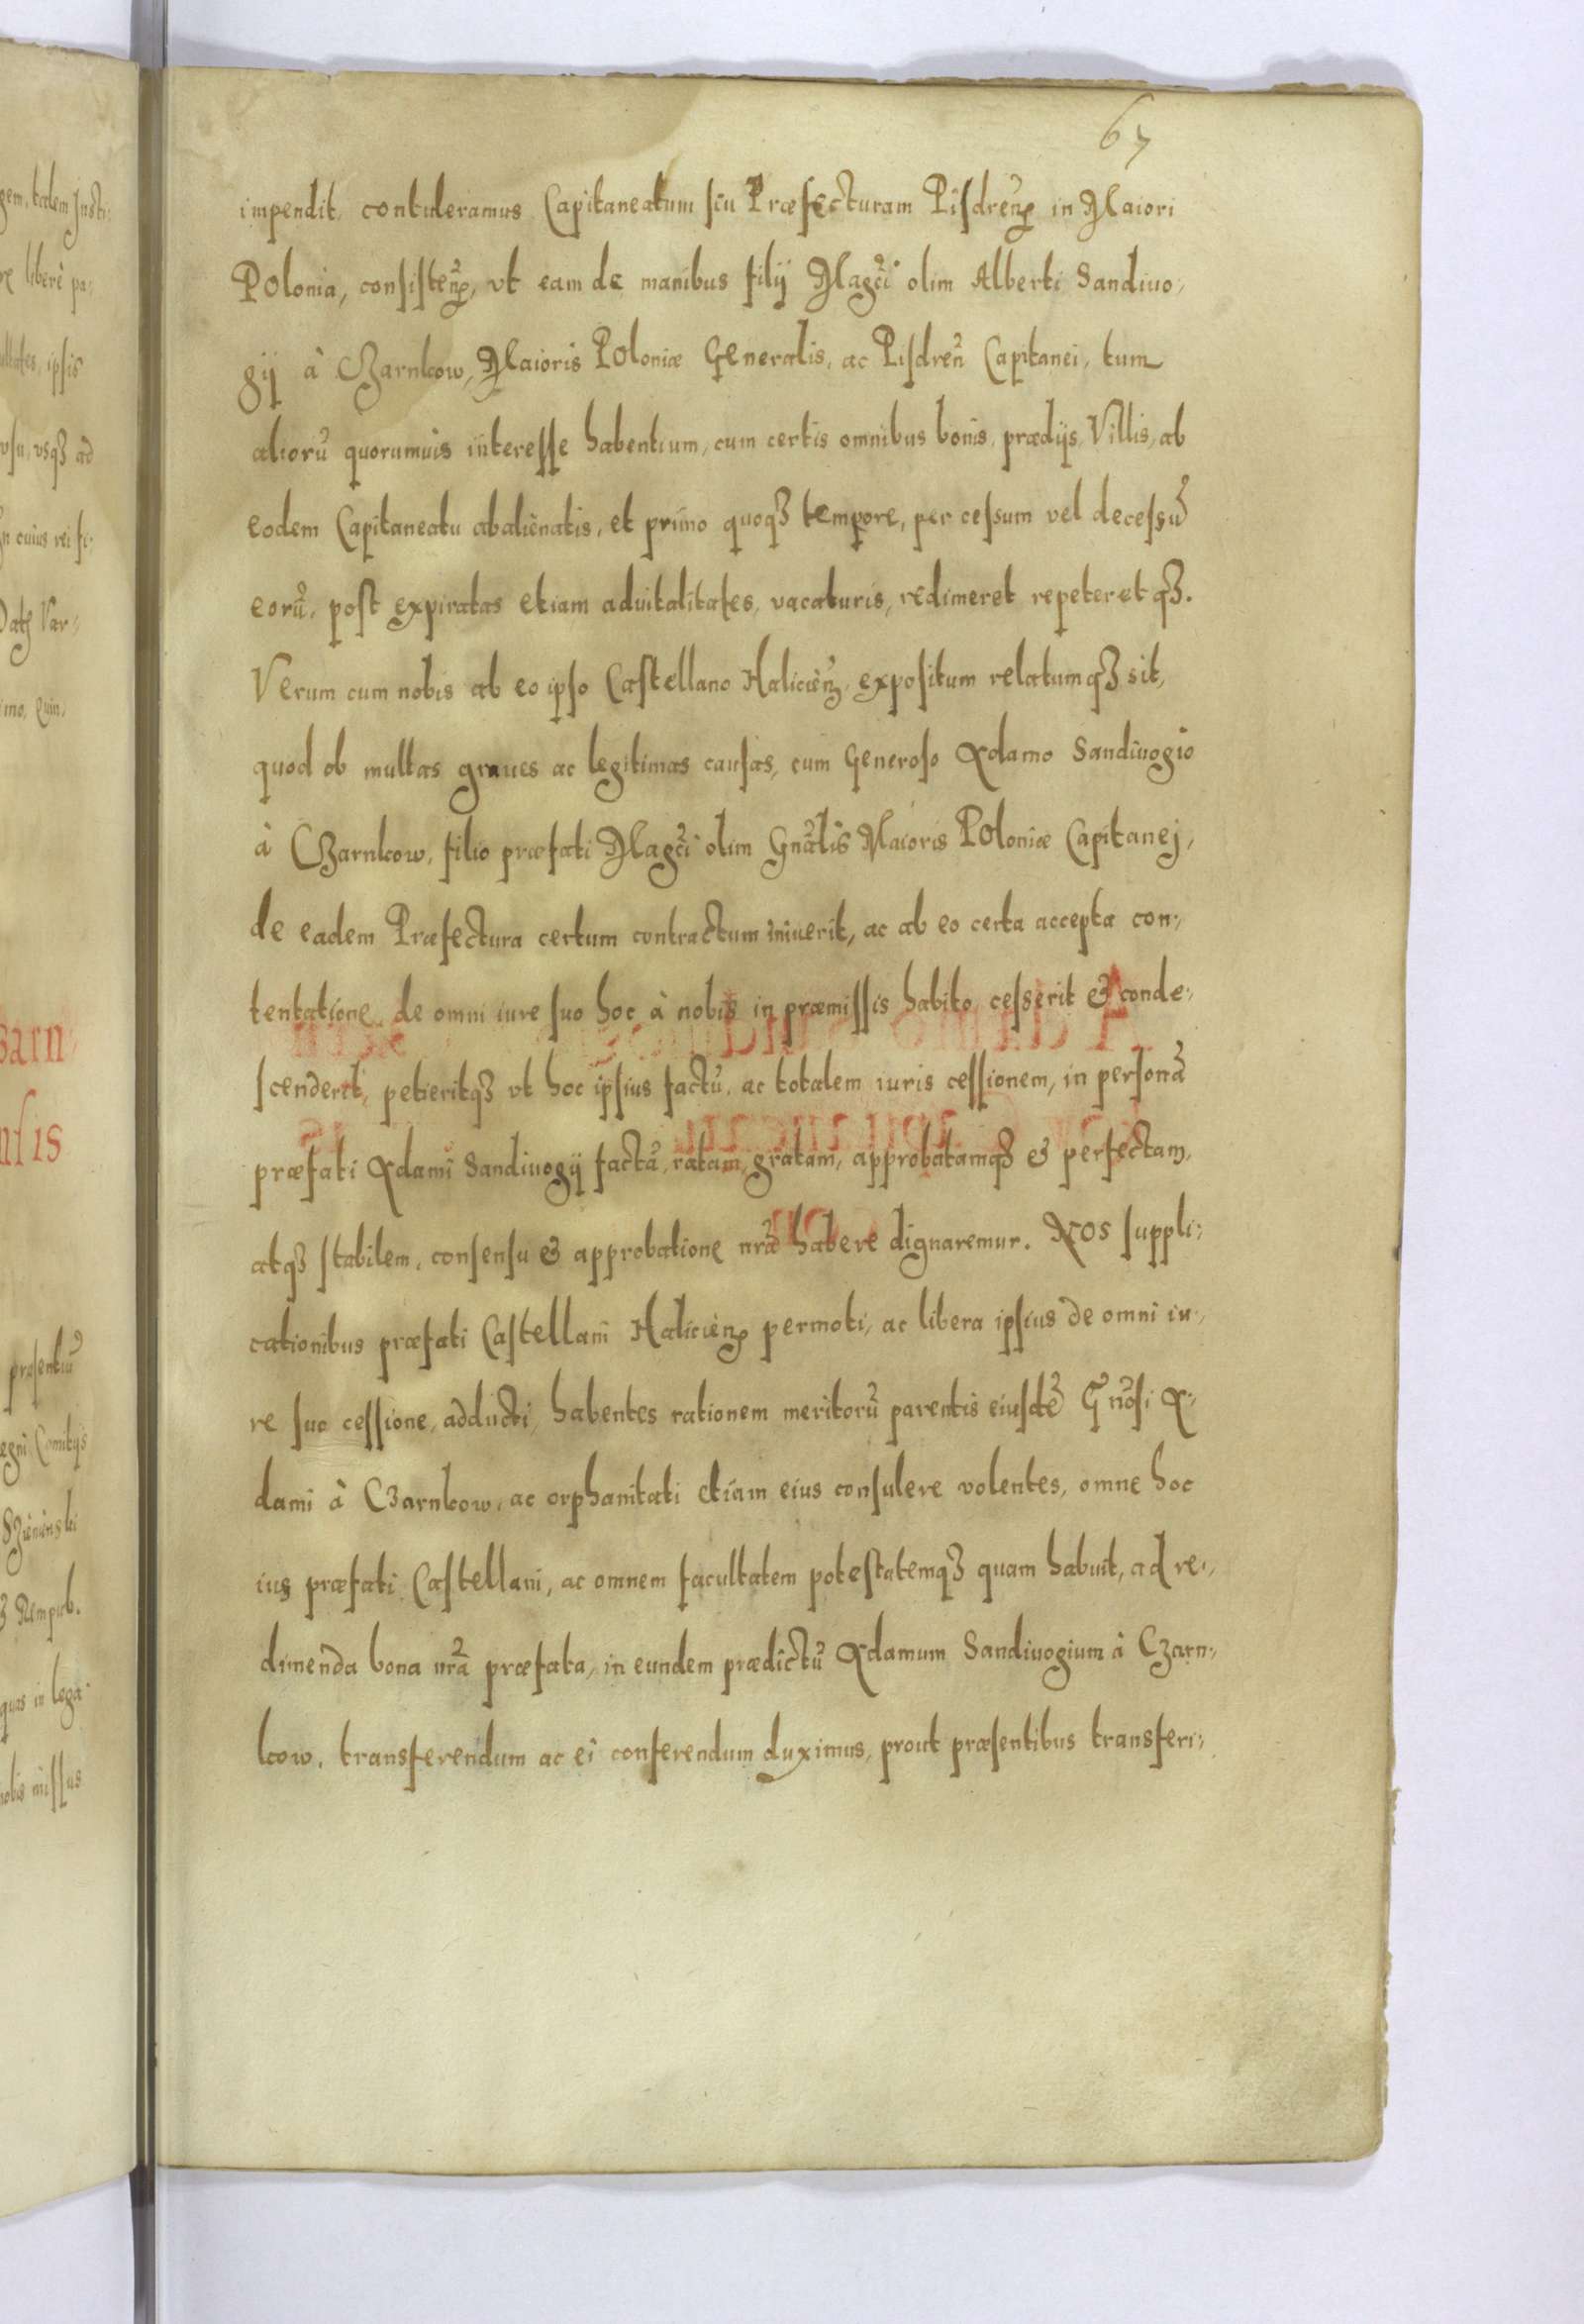 67
impendit, contuleramus Capitaneatum siu Præfecturam Pisdreñ in Maiori
Polonia, consisteñ, vt eam de manibus filij Magci olim Alberti Sandiuo,
gij à Czarnkow, Maioris Poloniæ Generalis, ac Pisdreñ Capitanei, tum
aliorũ quorumuis interesse habentium, cum certis omnibus bonis, prædijs, Villis, ab
eodem Capitaneatu abalienatis, et primo quoqȝ tempore, per cessum vel decessũ
eorũ, post expiratas etiam aduitalitates, vacaturis, redimeret repeteretqȝ.
Verum cum nobis ab eo ipso Castellano Halicieñ, expositum relatumqȝ sit,
quod ob multas graues ac legitimas causas, cum Generoso Adamo Sandiuogio
à Czarnkow, filio præfati Magci olim Gnãlis Maioris Poloniæ Capitanej,
de eadem Præfectura certum contractum iniuerit, ac ab eo certa accepta con,
tentatione de omni iure suo hoc à nobis in præmissis habito cesserit & conde,
scenderit, petieritqȝ vt hoc ipsius factũ, ac totalem iuris cessionem, in personã
præfati Adami Sandiuogij factã, ratam, gratam, approbatamqȝ & perfectam,
atqȝ stabilem, consensu & approbatione nrã habere dignaremur. Nos suppli,
cationibus præfati Castellani Halicieñ permoti, ac libera ipsius de omni iu,
re suo cessione, adducti, habentes rationem meritorũ parentis eiusdẽ Gñosi A,
dami à Czarnkow, ac orphanitati etiam eius consulere volentes, omne hoc
ius præfati Castellani, ac omnem facultatem potestatemqȝ quam habuit, ad re,
dimenda bona nrã præfata, in eundem prædictũ Adamum Sandiuogium à Czarn,
kow, transferendum ac ei conferendum duximus, prout præsentibus transferi,